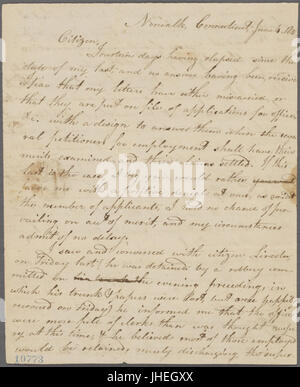 Norwalk, Connecticut June 4, 180
Citizen,
Fourteen days having elapsed since the
date of my last, and no answer having been received
I fear that my letters have either miscarried, or
that they are put on file of applications for offices
&c. with a design to answer them when the seve
ral petitioners for employment shall have their
merits examined, and their claims settled. If this
last is the case I would rather
the number of applicants, I can have no chance of pre
vailing on acct of merit, and my circumstances
admit of no delay.
I saw and conversed with citizen Lincoln
on Friday last; he was detained by a robbery com
mitted on the evening preceding, in
which his trunk & papers were lost, but were
recovered on Friday; he informed me that the offices
were more full of clerks than was thought necess
ary at this time, & he believes most of those employed
would be retained, merely discharging the super
19773
alamy
Image ID: JHEGXX
www.alamy.com